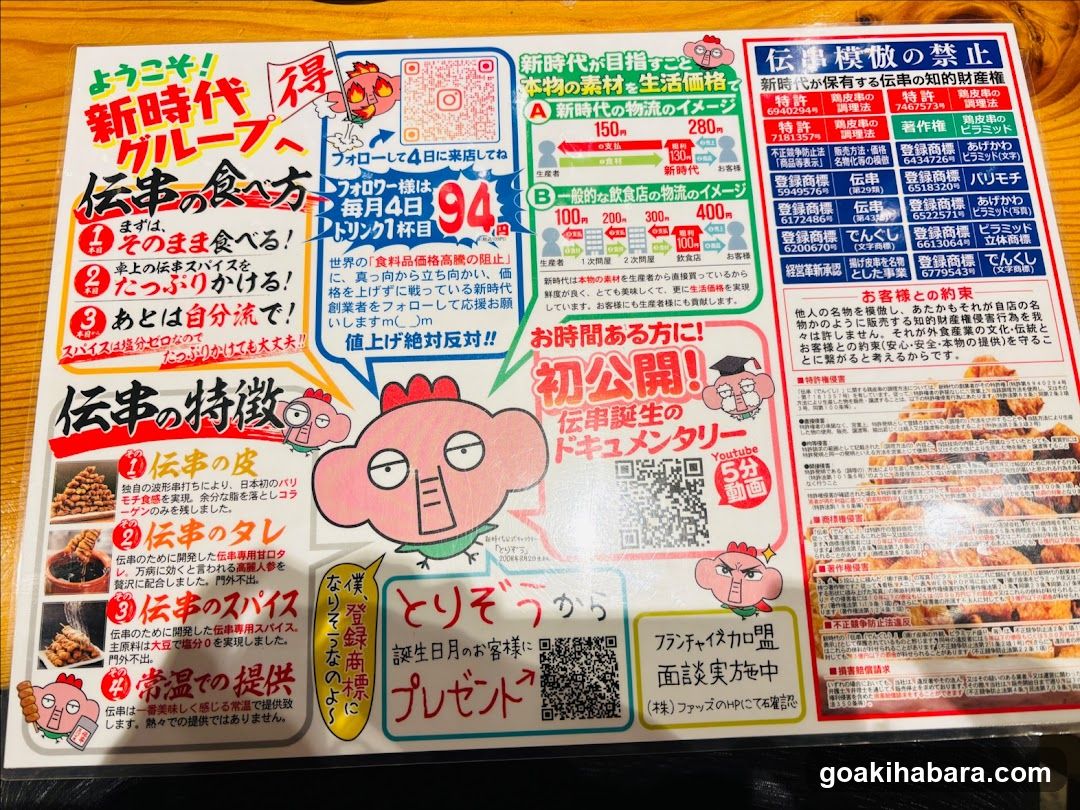 ようこそ!
新時代
グループへ
伝串の食べ方
1本目
まずは、
そのまま食べる!
2本目
卓上の伝串スパイスを
たっぷりかける!
3本目から
あとは自分流で!
スパイスは塩分ゼロなので
たっぷりかけても大丈夫!!
伝串の特徴
その1 伝串の皮
独自の波形串打ちにより、日本初のバリ
モチ食感を実現。余分な脂を落としコラ
ーゲンのみを残しました。
その2 伝串のタレ
伝串のために開発した伝串専用甘口タ
レ。万病に効くと言われる高麗人参を
贅沢に配合しました。門外不出。
その3 伝串のスパイス
伝串のために開発した伝串専用スパイス。
主原料は大豆で塩分0を実現しました。
門外不出。
その4 常温での提供
伝串は一番美味しく感じる常温で提供致
します。熱々での提供ではありません。
得
フォローして4日に来店してね
フォロワー様は
毎月4日
ドリンク1杯目
94円
世界の「食料品価格高騰の阻止」
に、真っ向から立ち向かい、価
格を上げずに戦っている新時代
創業者をフォローして応援お願
いしますm(_ _)m
値上げ絶対反対!!
新時代が目指すこと
本物の素材を生活価格で
A 新時代の物流のイメージ
150円
280円
支払
食材
粗利
130円
生産者
新時代
お客様
B 一般的な飲食店の物流のイメージ
100円
200円
300円
400円
粗利
100円
生産者
1次問屋
2次問屋
飲食店
お客様
新時代は本物の素材を生産者から直接買っているから
鮮度が良く、とても美味しくて、更に生活価格を実現
しています。お客様にも生産者様にも貢献します。
お時間ある方に!
初公開!
伝串誕生の
ドキュメンタリー
Youtube
5分
動画
僕、登録商標に
なりそうなのよ~
とりぞうから
誕生日月のお客様に
プレゼント
フランチャイズ加盟
面談実施中
(株)ファッズのHPにて確認
伝串模倣の禁止
新時代が保有する伝串の知的財産権
特許
6940294号
鶏皮串の
調理法
特許
7467573号
鶏皮串の
調理法
特許
7181357号
鶏皮串の
調理法
著作権
鶏皮串の
ピラミッド
不正競争防止法
「商品等表示」
販売方法・価格
名物化等の模倣
登録商標
6434726号
あげかわ
ピラミッド(文字)
登録商標
5949576号
伝串
(第29類)
登録商標
6518320号
パリモチ
登録商標
6172486号
伝串
登録商標
6522571号
あげかわ
ピラミッド(写真)
登録商標
6200670号
でんぐし
(文字商標)
登録商標
6613064号
ピラミッド
立体商標
経営革新承認
揚げ皮串を名物
とした事業
登録商標
6779543号
でんくし
(文字商標)
お客様との約束
他人の名物を模倣し、あたかもそれが自店の名
物かのように販売する知的財産権侵害行為を我
々は許しません。それが外食産業の文化・伝統と
お客様との約束(安心・安全・本物の提供)を守ること
に繋がると考えるからです。
■特許権侵害
■商標権侵害
■著作権侵害
■不正競争防止法違反
■損害賠償請求
goakihabara.com